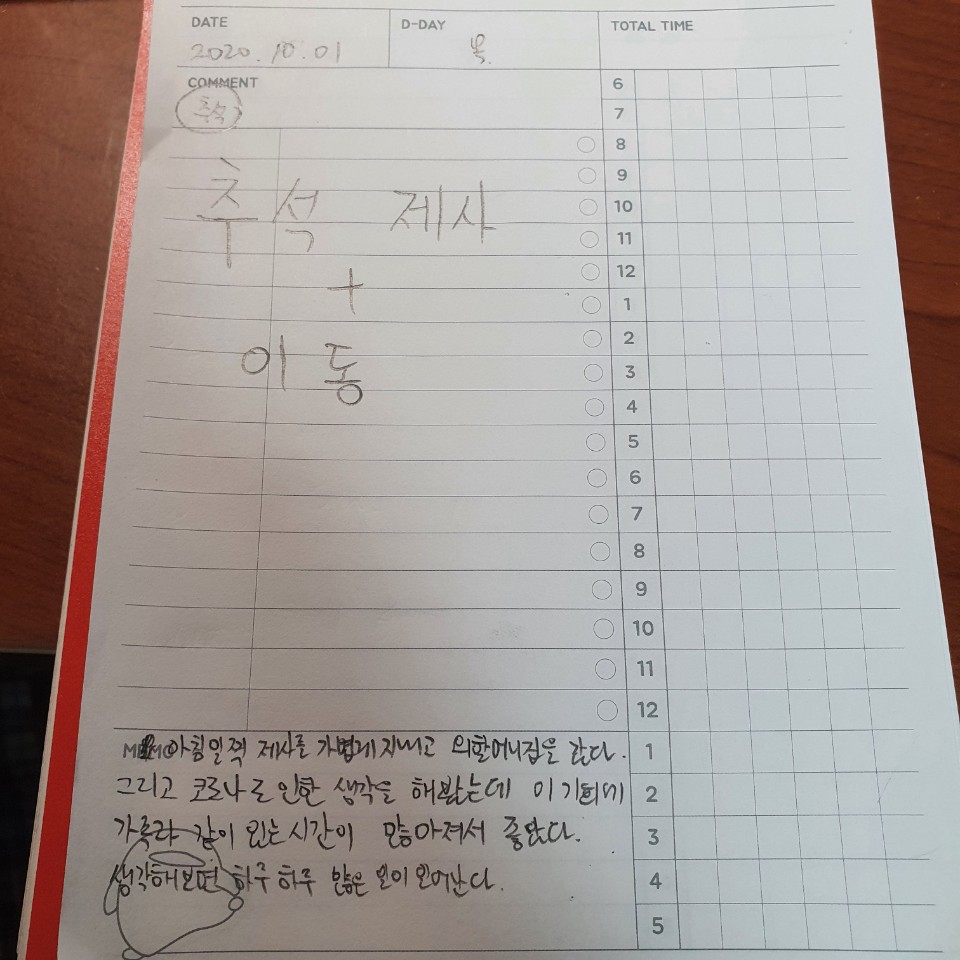 DATE D-DAY TOTAL TIME
2020.10.01 목.
COMMENT
추석
6
7
8
9
10
11
12
1
2
3
4
5
6
7
8
9
10
11
12
1
2
3
4
5
추석 제사
+
이동
아침일찍 제사를 가볍게 지내고 외할머니집을 갔다.
그리고 코로나로 인한 생각을 해봤는데 이 기회에
가족과 같이 있는 시간이 많아져서 좋았다.
생각해보면 하루하루 많은 일이 일어난다.